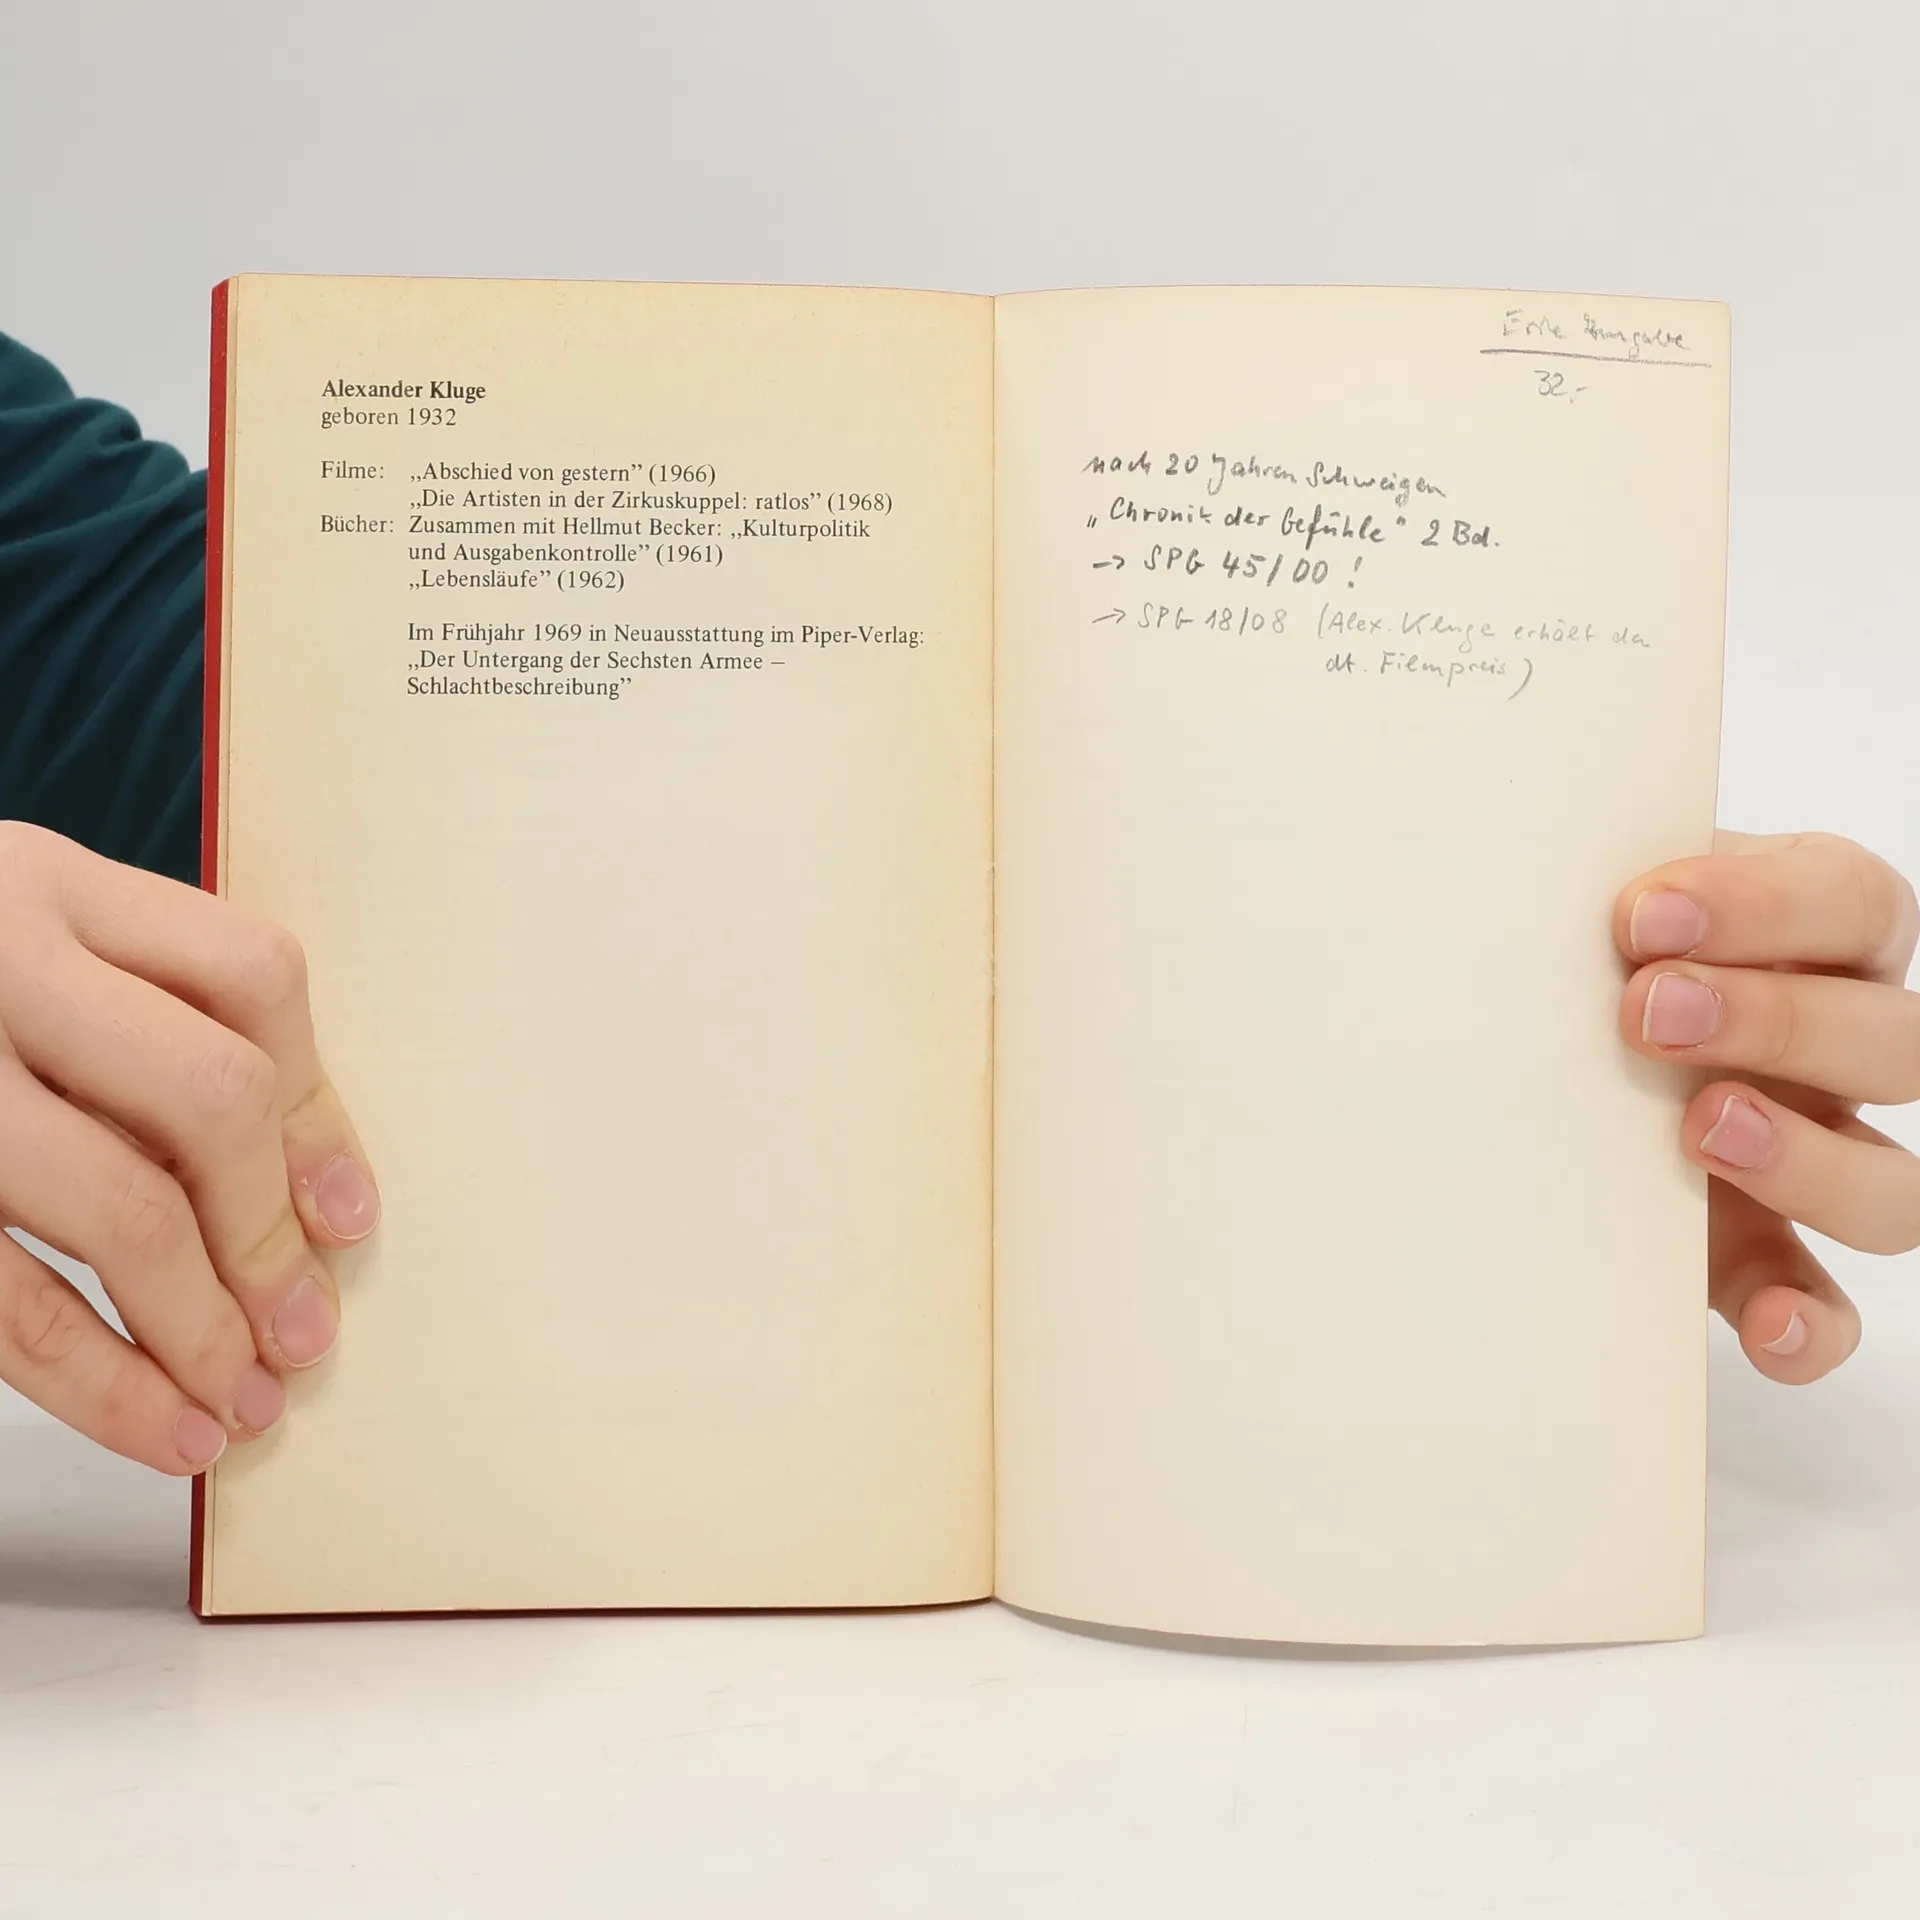 Alexander Kluge
geboren 1932
Filme: „Abschied von gestern” (1966)
„Die Artisten in der Zirkuskuppel: ratlos” (1968)
Bücher: Zusammen mit Hellmut Becker: „Kulturpolitik
und Ausgabenkontrolle” (1961)
„Lebensläufe” (1962)
Im Frühjahr 1969 in Neuausstattung im Piper-Verlag:
„Der Untergang der Sechsten Armee –
Schlachtbeschreibung”
32,-
nach 20 Jahren Schweigen
„Chronik der Gefühle“ 2 Bd.
→ SPG 45/00 !
→ SPG 18/08 (Alex. Kluge erhält den
dt. Filmpreis)